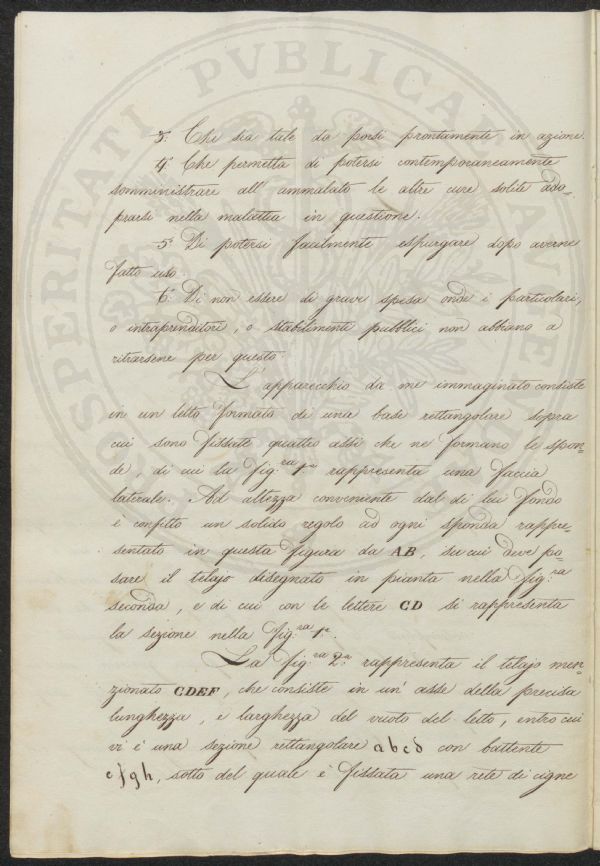 3.° Che sia tale da porsi prontamente in azione.
4.° Che permetta di potersi contemporaneamente
somministrare all' ammalato le altre cure solite ado-
prarsi nella malattia in questione.
5.° Di potersi facilmente espurgare dopo averne
fatto uso.
6.° Di non essere di grave spesa onde i particolari,
o intraprenditori, o stabilimenti pubblici non abbiano a
ritrarsene per questo.
L'apparecchio da me immaginato consiste
in un letto formato di una base rettangolare sopra
cui sono fissate quattro assi che ne formano le spon-
de, di cui la Fig.ra 1.a rappresenta una faccia
laterale. Ad altezza conveniente dal di lui fondo
è confitto un solido regolo ad ogni sponda rappre-
sentato in questa figura da AB, su cui deve po-
sare il telajo disegnato in pianta nella Fig.ra
seconda, e di cui con le lettere CD si rappresenta
la sezione nella Fig.ra 1.a
La Fig.ra 2.a rappresenta il telajo men-
zionato CDEF, che consiste in un' asse della precisa
lunghezza, e larghezza del vuoto del letto, entro cui
vi è una sezione rettangolare abcd con battente
efgh, sotto del quale è fissata una rete di cigne
PROSPERITATI PVBLICAE AVGENDAE